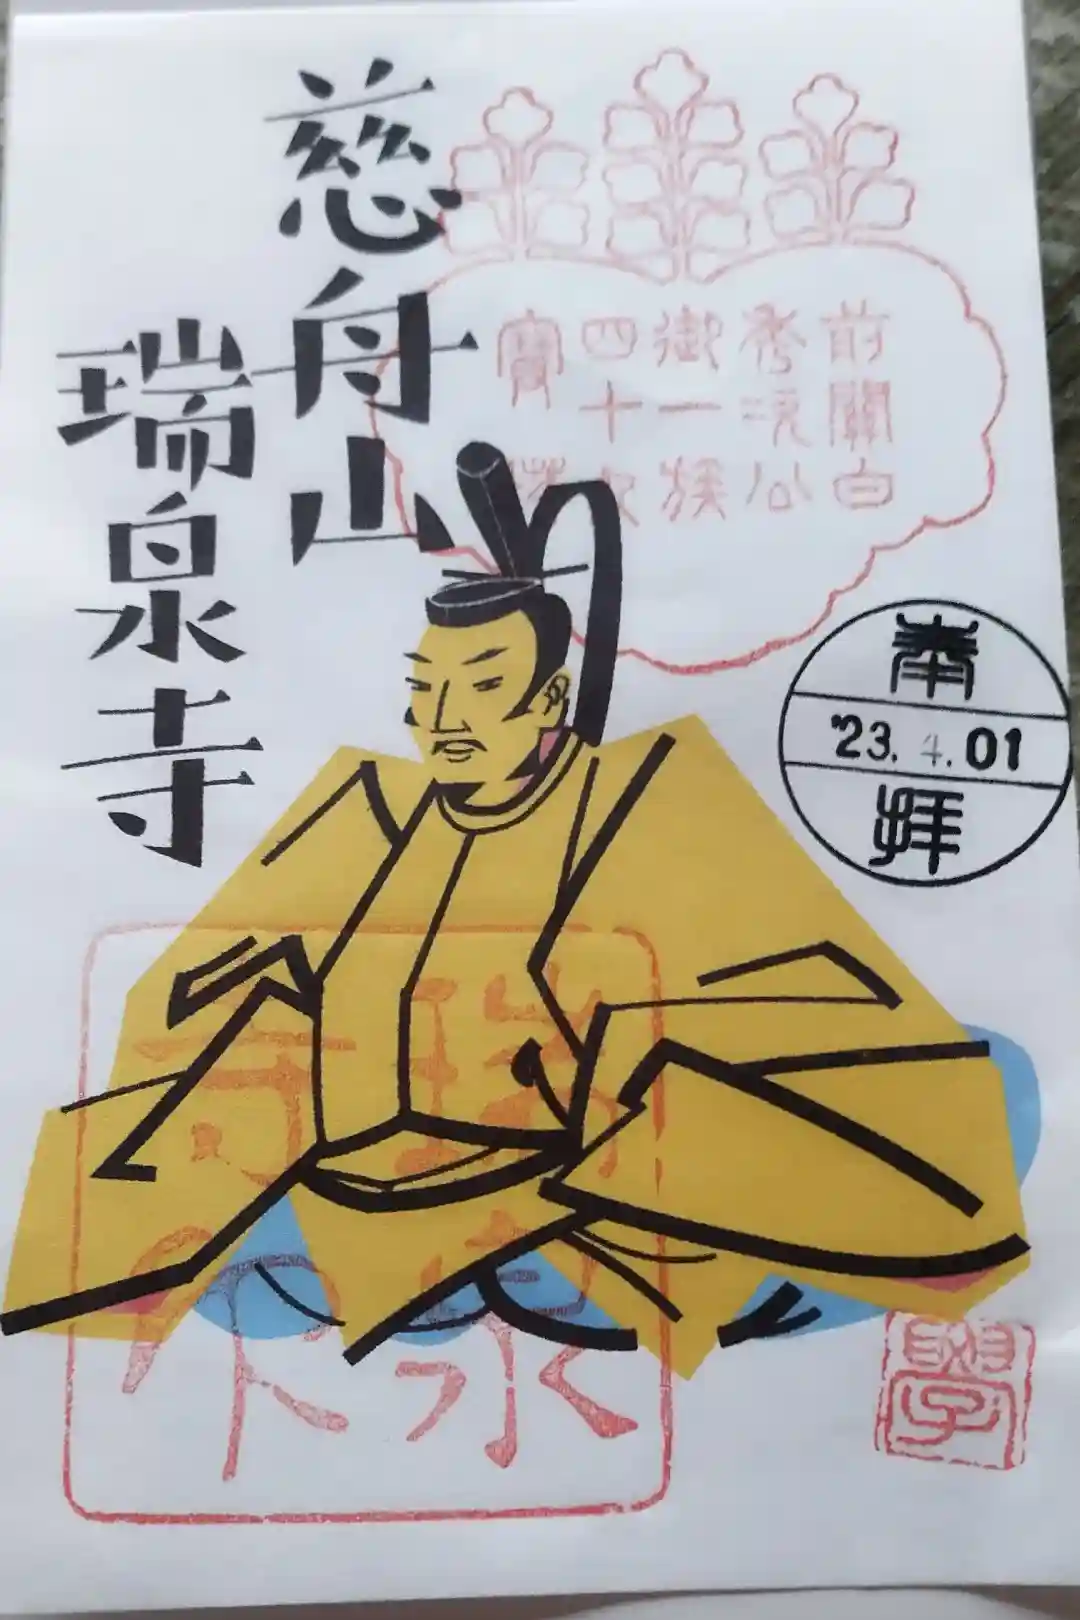 慈舟山
瑞泉寺
前關白
秀次公
御一族
四十
寶
奉
'23. 4. 01
拝
瑞泉
寺印